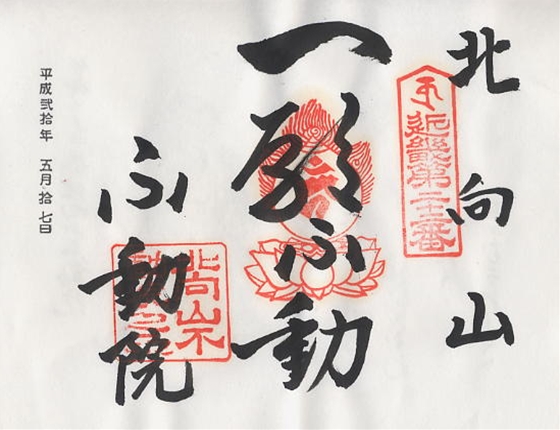 北向山
近畿第二十三番
一願不動
北向山不
不動院
平成弐拾年　五月拾七日